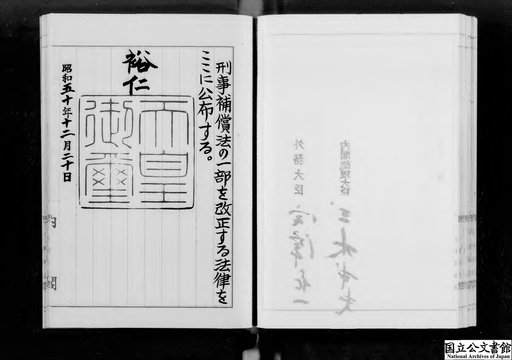 刑事補償法の一部を改正する法律を
ここに公布する。
裕仁
天皇
御璽
昭和五十年十二月二十日
内閣
内閣総理大臣
外務大臣
国立公文書館
National Archives of Japan